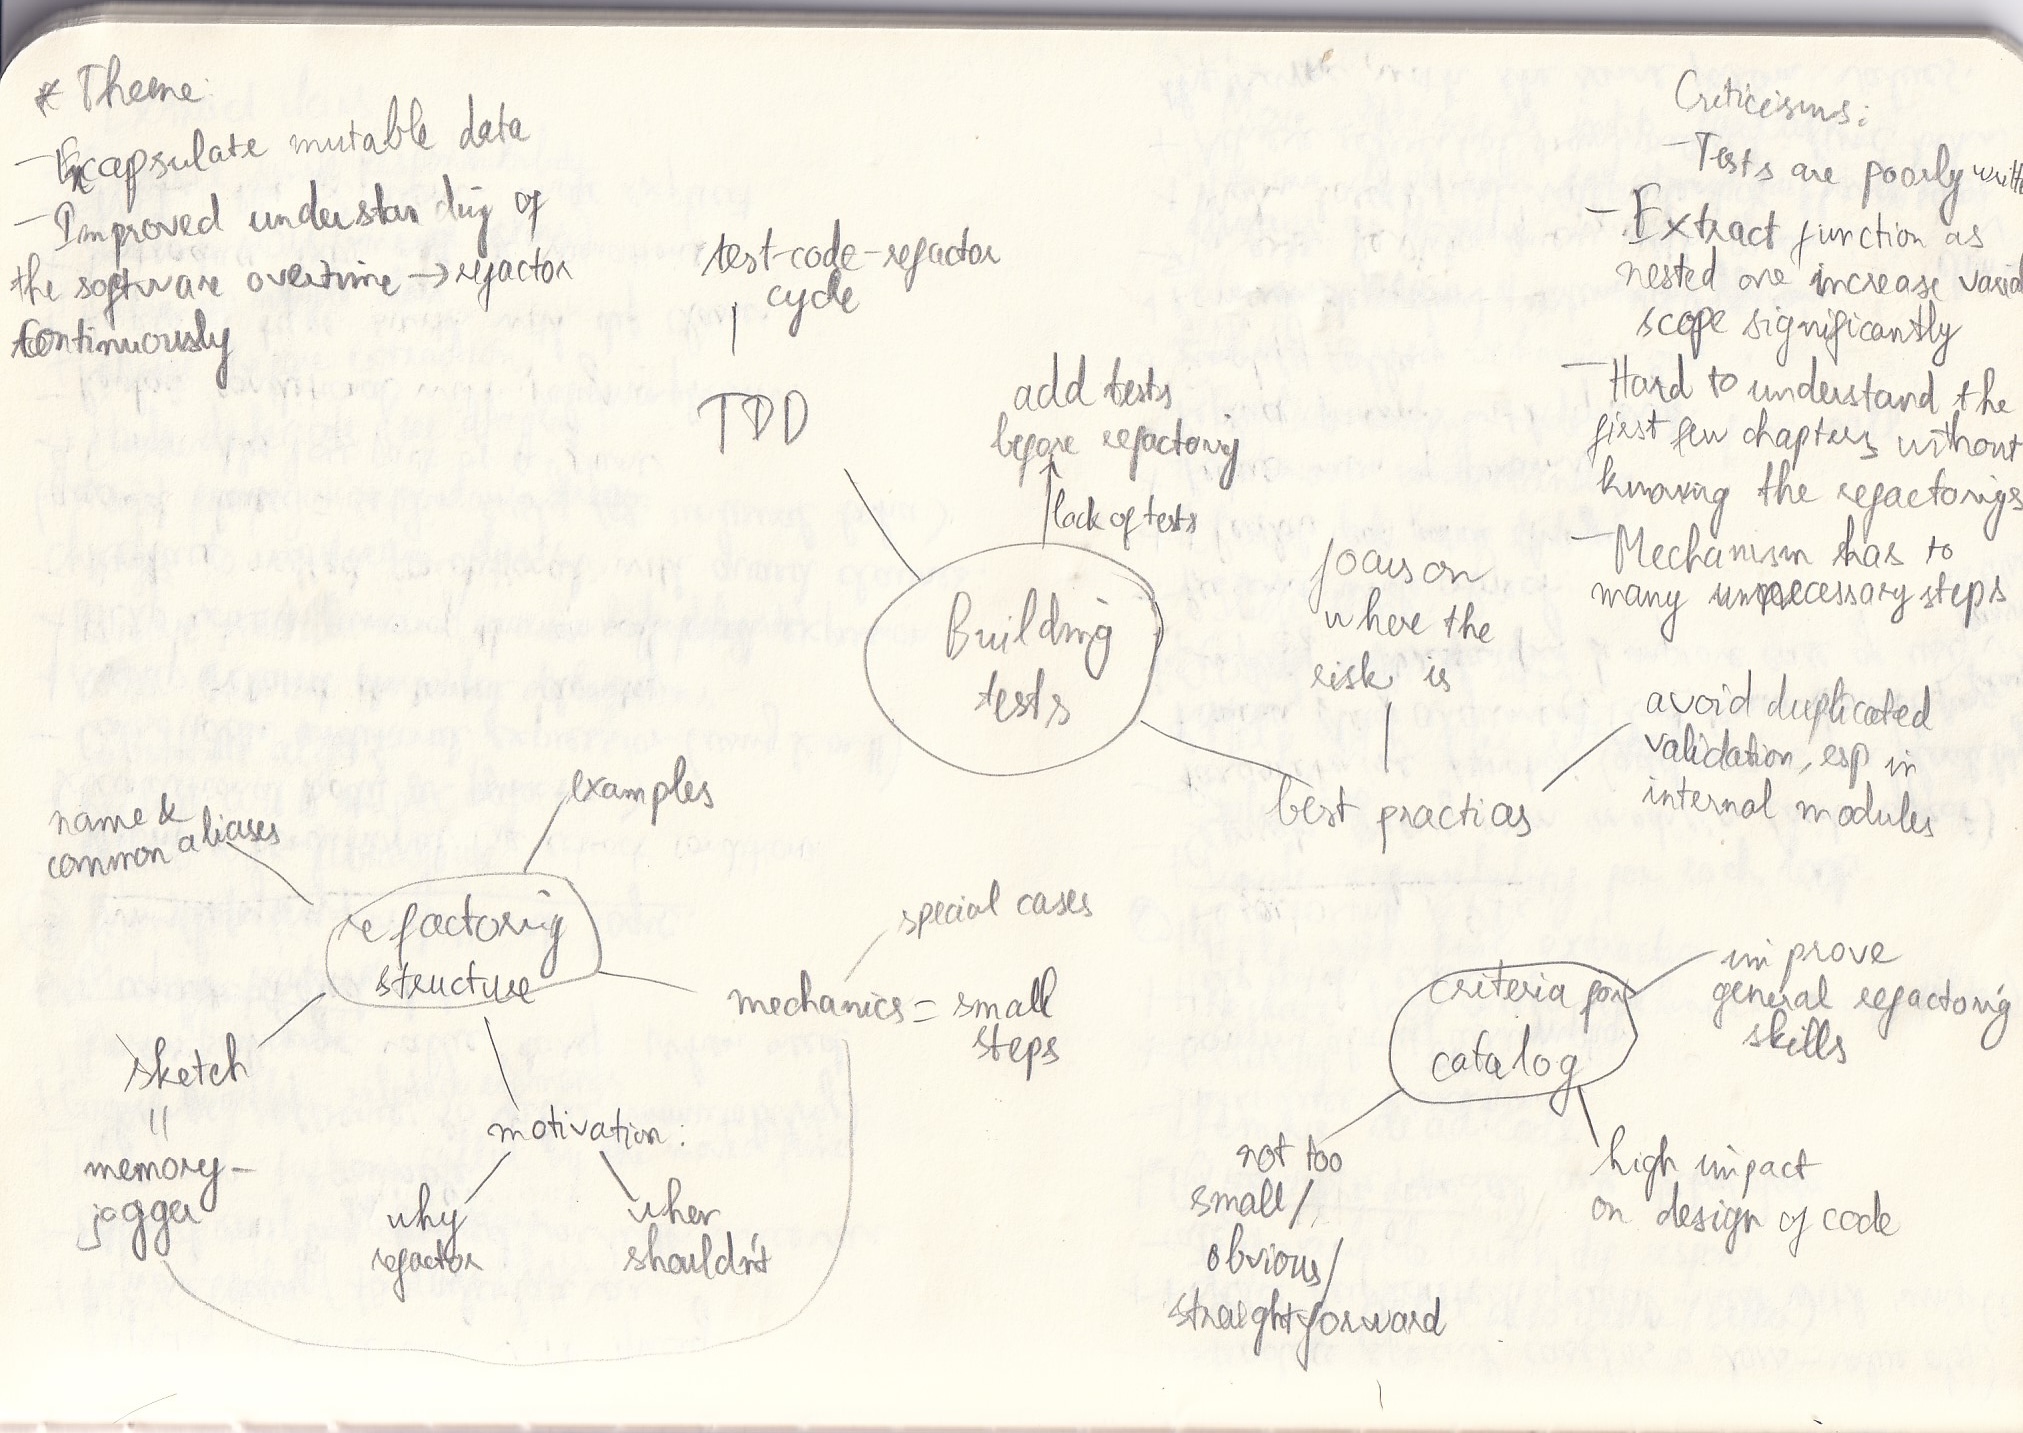 * Theme:
- Encapsulate mutable data
- Improved understanding of
the software overtime → refactor
continuously
test-code-refactor
cycle
TDD
add tests
before refactoring
lack of tests
Building
tests
focus on
where the
risk is
best practices
avoid duplicated
validation, esp in
internal modules
Criticisms:
- Tests are poorly
- Extract function as
nested one increase
scope significantly
- Hard to understand the
first few chapters without
knowing the refactorings
- Mechanism has to
many unnecessary steps
name &
common aliases
examples
refactoring
structure
special cases
mechanics = small
steps
sketch
=
memory-
jogger
motivation:
why
refactor
when
shouldn't
criteria for
catalog
improve
general refactoring
skills
not too
small/
obvious/
straightforward
high impact
on design of code